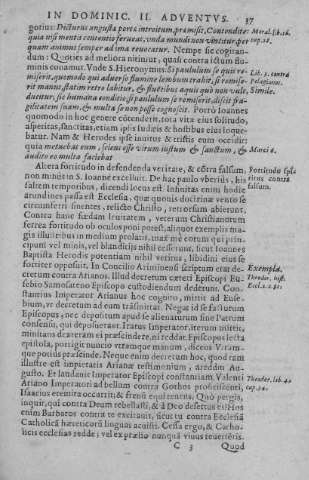 IN DOMINIC. II. ADVENTVS. 37
gotius: Dicturus angusta porta introitum præmisit, Contendite: Moral. li. 11.
quia nisi mentis contentio ferueat, vnda mundi non vincitur, per cap. 28.
quam animus semper ad ima reuocatur. Nempe sic cogiran-
dum: Quoties ad meliora nitimur, quasi contra ictum flu-
minis conamur. Vnde S. Hieronymus. Si paululum se quis re-
miserit, quomodo qui aduerso flumine lembum trahit, si remise-
rit manus, statim retro labitur, & fluctibus aquis quò non vult, Simile.
ducitur, sic humana conditio si paululum se remiserit, discit fra-
gilitatem suam, & multa se non posse cognoscit. Porrò Ioannes
quomodo in hoc genere contenderit, tota vita eius solitudo,
asperitas, sanctitas, etiam ipsis Iudæis & hostibus eius loque-
batur. Nam & Herodes ipse inuitus & tristis eum occidit:
quia metuebat eum, sciens esse virum iustum & sanctum, & Marci 6.
audito eo multa faciebat
Altera fortitudo in defendenda veritate, & cōtra falsum,
non minùs in S. Ioanne excelluit. De hac paulo vberiùs, his
saltem temporibus, dicendi locus est. Infinitas enim hodie
arundines passa est Ecclesia, quæ quouis doctrinæ vento se
circumferri sinentes, relicto Christo, retrorsum abierunt.
Contra hanc fœdam leuitatem, veram Christianorum
ferrea fortitudo ob oculos poni potest, aliquot exemplis ma-
gis illustribus in medium prolatis, maximè eorum qui prin-
cipum vel minis, vel blandiciis nihil cesserunt, sicut Ioannes
Baptista Herodis potentiam nihil veritus, libidini eius se
fortiter opposuit. In Concilio Ariminensi scriptum erat de- Exempla.
cretum contra Arianos. Illud decretum cæteri Episcopi Eu-
sebio Samosateno Episcopo custodiendum dederunt. Con-
stantius Imperator Arianus hoc cognito, mittit ad Euse-
bium, vt decretum ad eum trāsmittat. Negat id se facturum
Episcopus, nec depositum apud se alienaturum sine Patrum
consensu, qui deposuerant. Iratus Imperator, iterum mittit,
minitans dexteram ei præscindere, ni reddat. Episcopus lecta
epistola, porrigit nuncio vtramque manum, dicens: Vtram-
que potiùs præscinde. Neque enim decretum hoc, quod tam
illustre est impietatis Arianæ testimonium, areddam Au-
gusto. Et laudanit Imperator Episcopi constantiam. Valenti Theodor. lib. 4.
Ariano Imperatori ad bellum contra Gothos proficiscenti, cap. 34.
Isaacius eremita occurrit, & frenū equi tenens, Quò pergis,
inquit, qui contra Deum rebellasti, & à Deo desertus es? Hos
enim Barbaros contra te excitauit, sicut tu contra Ecclesiā
Catholicā hæreticorū linguas acuisti. Cessa ergo, & Catho-
licis ecclesias redde; vel ex prælio nunquā viuus reuerteris.
C 3 Quod